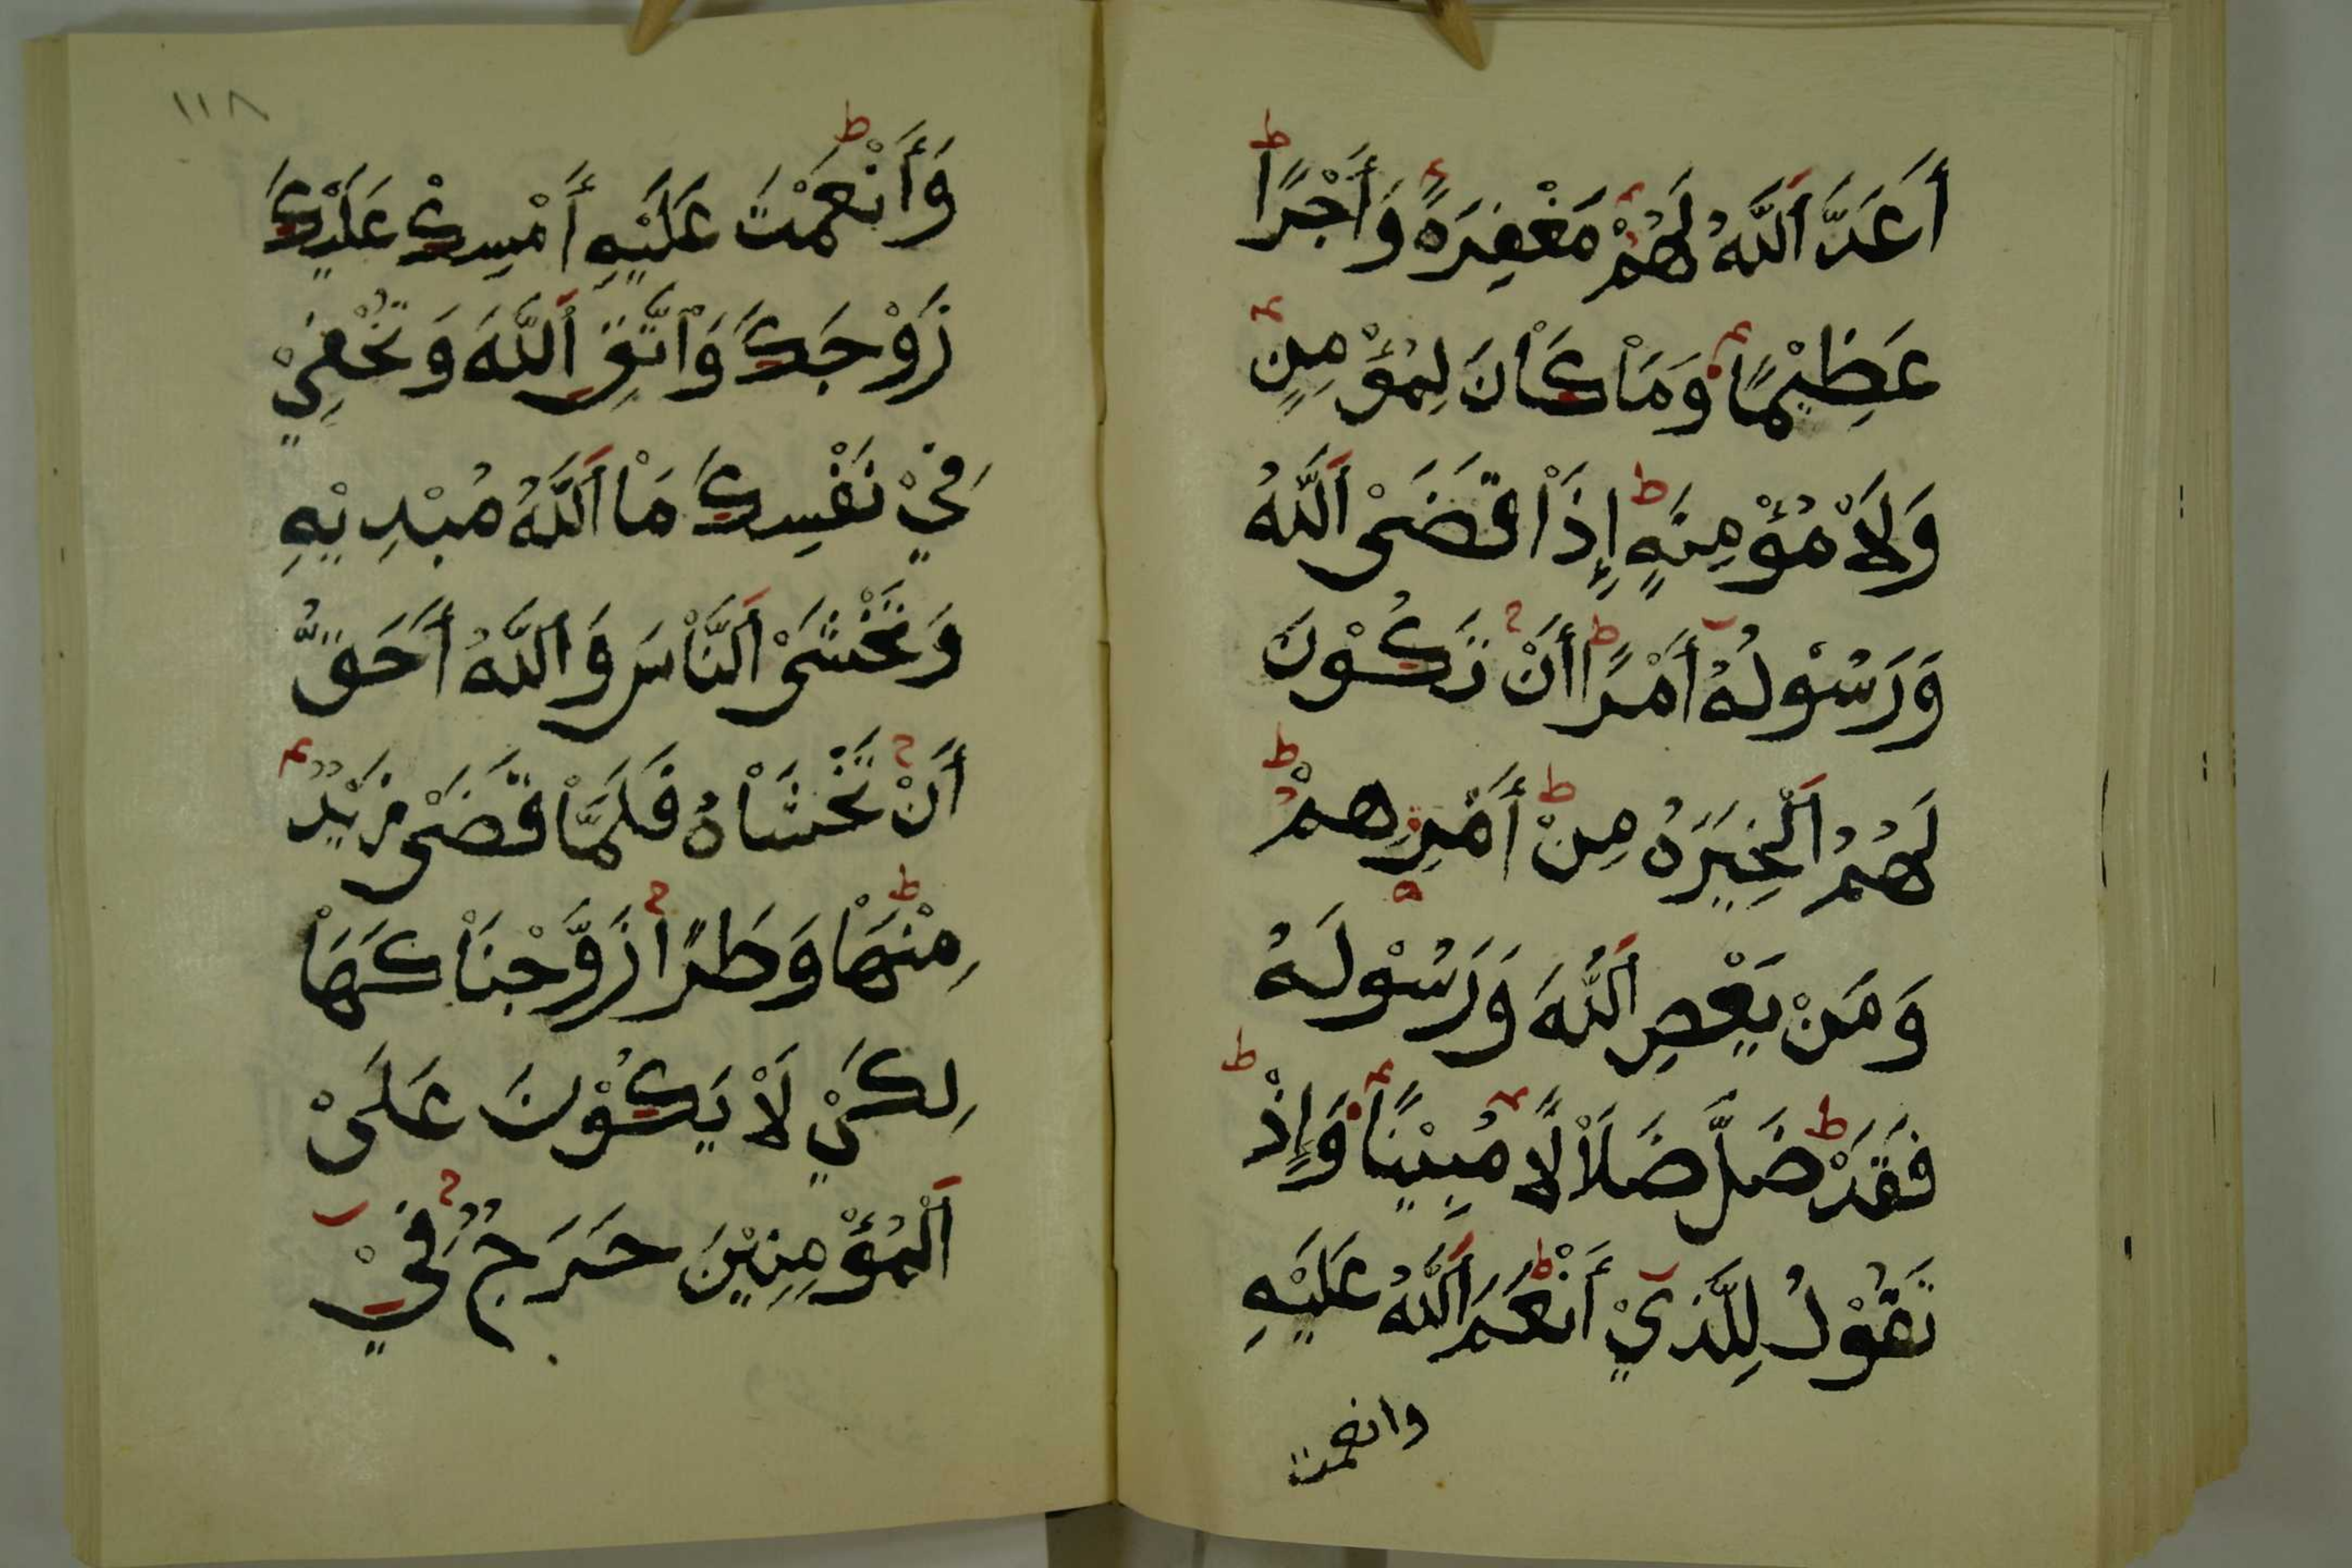 أَعَدَّ اَللَّهُ لَهُمْ مَغْفِرَةً وَأَجْرًا
عَظِيْمًا وَمَاْ كَاْنَ لِمُؤْمِنٍ
وَلَاْ مُؤْمِنَةٍ إِذَاْ قَضَىْ اَللَّهُ
وَرَسُوْلُهُ أَمْرًا أَنْ تَكُوْنَ
لَهُمُ اَلْخِيَرَةُ مِنْ أَمْرِهِمْ
وَمَنْ يَعْصِ اَللَّهَ وَرَسُوْلَهُ
فَقَدْ ضَلَّ ضَلَاْلًا مُبِيْنًا وَإِذْ
تَقُوْلُ لِلَّذِيْ أَنْعَمَ اَللَّهُ عَلَيْهِ
وانعمت
١١٨
وَأَنْعَمْتَ عَلَيْهِ أَمْسِكْ عَلَيْكَ
زَوْجَكَ وَاْتَّقِ اَللَّهَ وَتُخْفِيْ
فِيْ نَفْسِكَ مَاْ اَللَّهُ مُبْدِيْهِ
وَتَخْشَىْ اَلنَّاْسَ وَاَللَّهُ أَحَقُّ
أَنْ تَخْشَاْهُ فَلَمَّاْ قَضَىْ زَيْدٌ
مِنْهَاْ وَطَرًا زَوَّجْنَاْكَهَاْ
لِكَيْ لَاْ يَكُوْنَ عَلَىْ
اَلْمُؤْمِنِيْنَ حَرَجٌ فِيْ